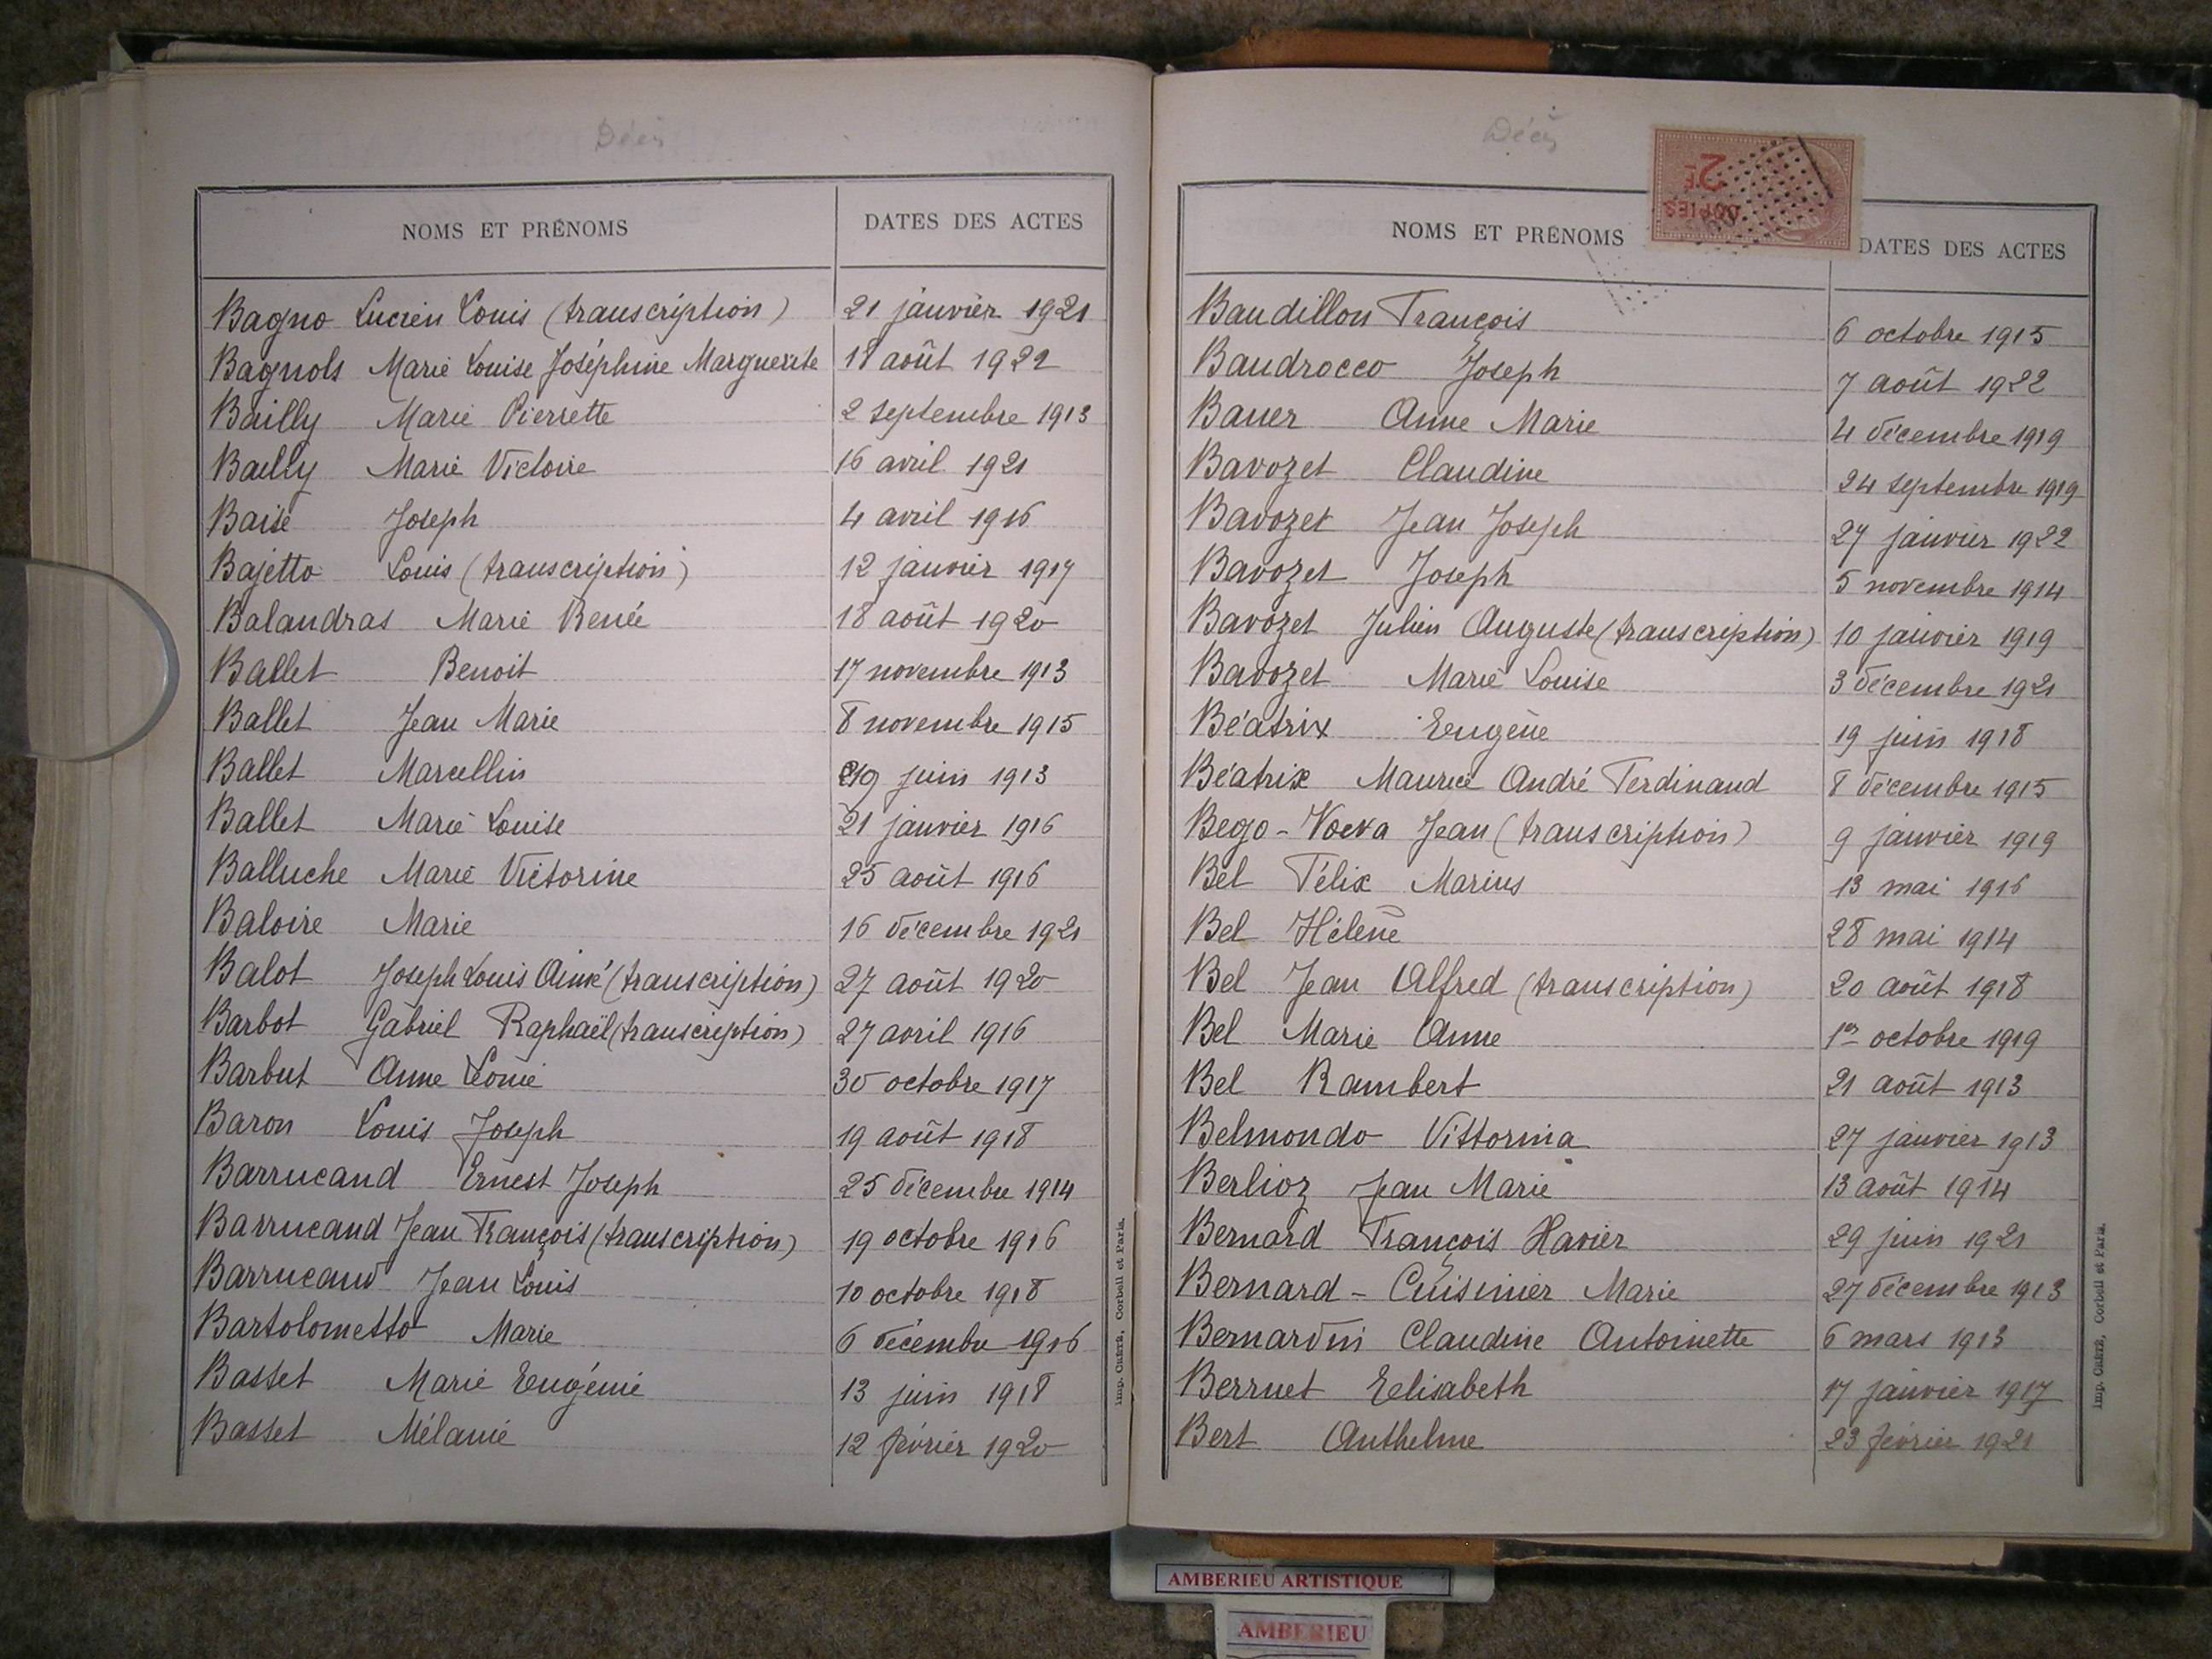 Décès
NOMS ET PRÉNOMS DATES DES ACTES
Bagno Lucien Louis (transcription) 21 janvier 1921
Bagnols Marie Louise Joséphine Marguerite 18 août 1922
Bailly Marie Pierrette 2 septembre 1913
Bailly Marie Victoire 16 avril 1921
Baise Joseph 4 avril 1916
Bajetto Louis (transcription) 12 janvier 1917
Balandras Marie Renée 18 août 1920
Ballet Benoit 17 novembre 1913
Ballet Jean Marie 8 novembre 1915
Ballet Marcellin 29 juin 1913
Ballet Marie Louise 21 janvier 1916
Balluche Marie Victorine 25 août 1916
Baloire Marie 16 décembre 1921
Balot Joseph Louis Aimé (transcription) 27 août 1920
Barbot Gabriel Raphaël (transcription) 27 avril 1916
Barbut Anne Léonie 30 octobre 1917
Baron Louis Joseph 19 août 1918
Barrucand Ernest Joseph 25 décembre 1914
Barrucand Jean François (transcription) 19 octobre 1916
Barrucand Jean Louis 10 octobre 1918
Bartolometto Marie 6 décembre 1916
Basset Marie Eugénie 13 juin 1918
Basset Mélanie 12 février 1920
Imp. CRÉTÉ, Corbeil et Paris.
Décès
2F
COPIES
NOMS ET PRÉNOMS DATES DES ACTES
Baudillon François 6 octobre 1915
Baudrocco Joseph 7 août 1922
Bauer Anne Marie 4 décembre 1919
Bavozet Claudine 24 septembre 1919
Bavozet Jean Joseph 27 janvier 1922
Bavozet Joseph 5 novembre 1914
Bavozet Julien Auguste (transcription) 10 janvier 1919
Bavozet Marie Louise 3 décembre 1921
Béatrix Eugène 19 juin 1918
Béatrix Maurice André Ferdinand 8 décembre 1915
Bego - Jean (transcription) 9 janvier 1919
Bel Félix Marius 13 mai 1916
Bel Hélène 28 mai 1914
Bel Jean Alfred (transcription) 20 août 1918
Bel Marie Anne 1er octobre 1919
Bel Rambert 21 août 1913
Belmondo Vittorina 27 janvier 1913
Berlioz Jean Marie 13 août 1914
Bernard François Xavier 29 juin 1921
Bernard - Cuisinier Marie 27 décembre 1913
Bernardin Claudine Antoinette 6 mars 1913
Berruet Eelisabeth 17 janvier 1917
Bert Anthelme 23 février 1921
Imp. CRÉTÉ, Corbeil et Paris.
AMBERIEU ARTISTIQUE
AMBERIEU